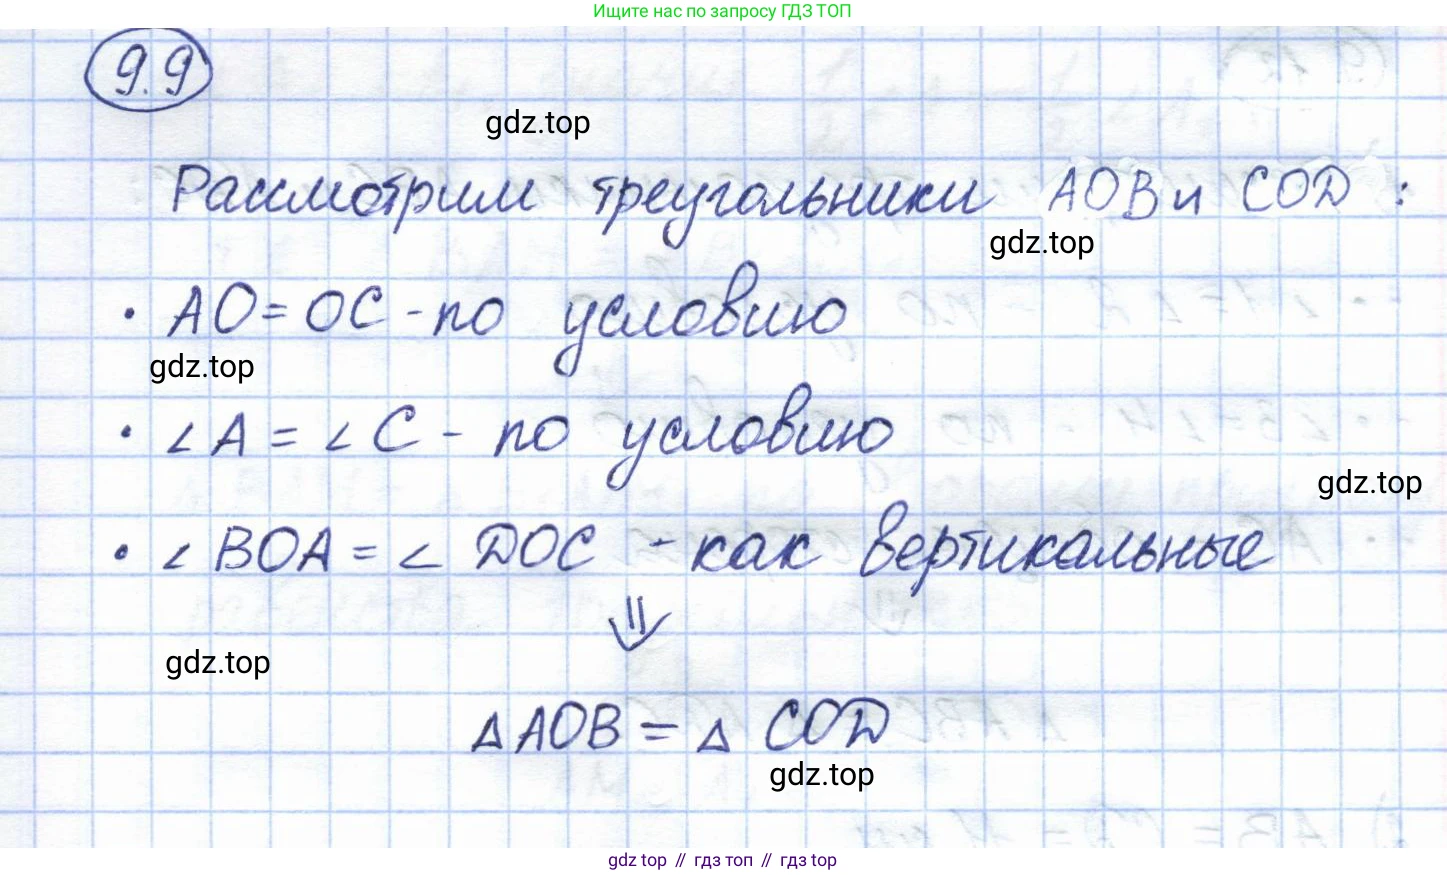 Ищите нас по запросу ГДЗ ТОП
9.9
gdz.top
Рассмотрим треугольники AOB и COD :
gdz.top
· AO = OC - по условию
gdz.top
· ∠A = ∠C - по условию
gdz.top
· ∠BOA = ∠DOC - как вертикальные
⇓
gdz.top
△AOB = △COD
gdz.top
gdz top // гдз топ // гдз top